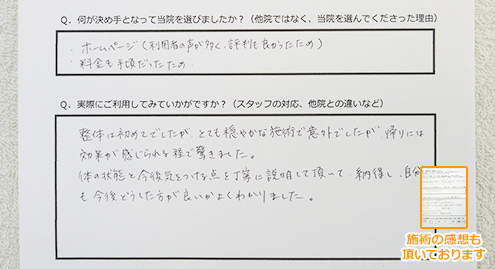 Q. 何が決め手となって当院を選びましたか？（他院ではなく、当院を選んでくださった理由）
・ホームページ（利用者の声が多く、評判も良かったため）
・料金も手頃だったため
Q. 実際にご利用してみていかがですか？（スタッフの対応、他院との違いなど）
整体は初めてでしたが、とても穏やかな施術で意外でしたが、帰りには
効果が感じられる程で驚きました。
体の状態と今後気をつける点を丁寧に説明して頂いて、納得し、自分
も今後どうした方が良いかよくわかりました。
施術の感想も
頂いております